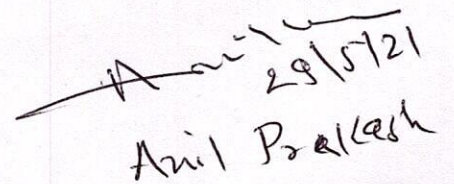 Anil
29/5/21
Anil Prakash